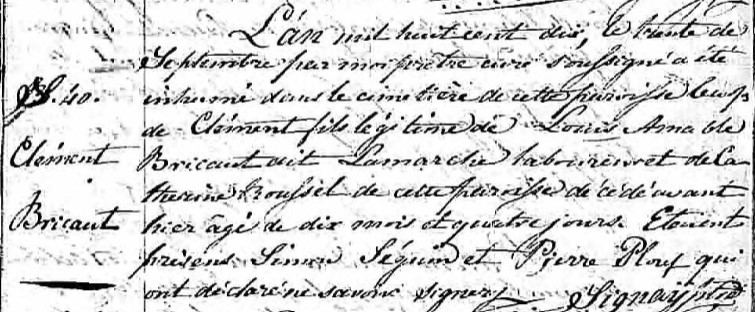 L'án mil huit cent dix, le trente de
Septembre par moi prêtre curé soussigné a été
S. 40. inhumé dans le cimetière de cette paroisse le corp
de Clément fils légitime de Louis Amable
Clément Bricaut dit Lamarche laboureur et de Ca
therine Roussel de cette paroisse décédé avant
Bricaut hier âgé de dix mois et quatre jours. Etoient
présens Simon Séguin et Pierre Plouf qui
ont déclaré ne savoir signer Signaÿ ptre